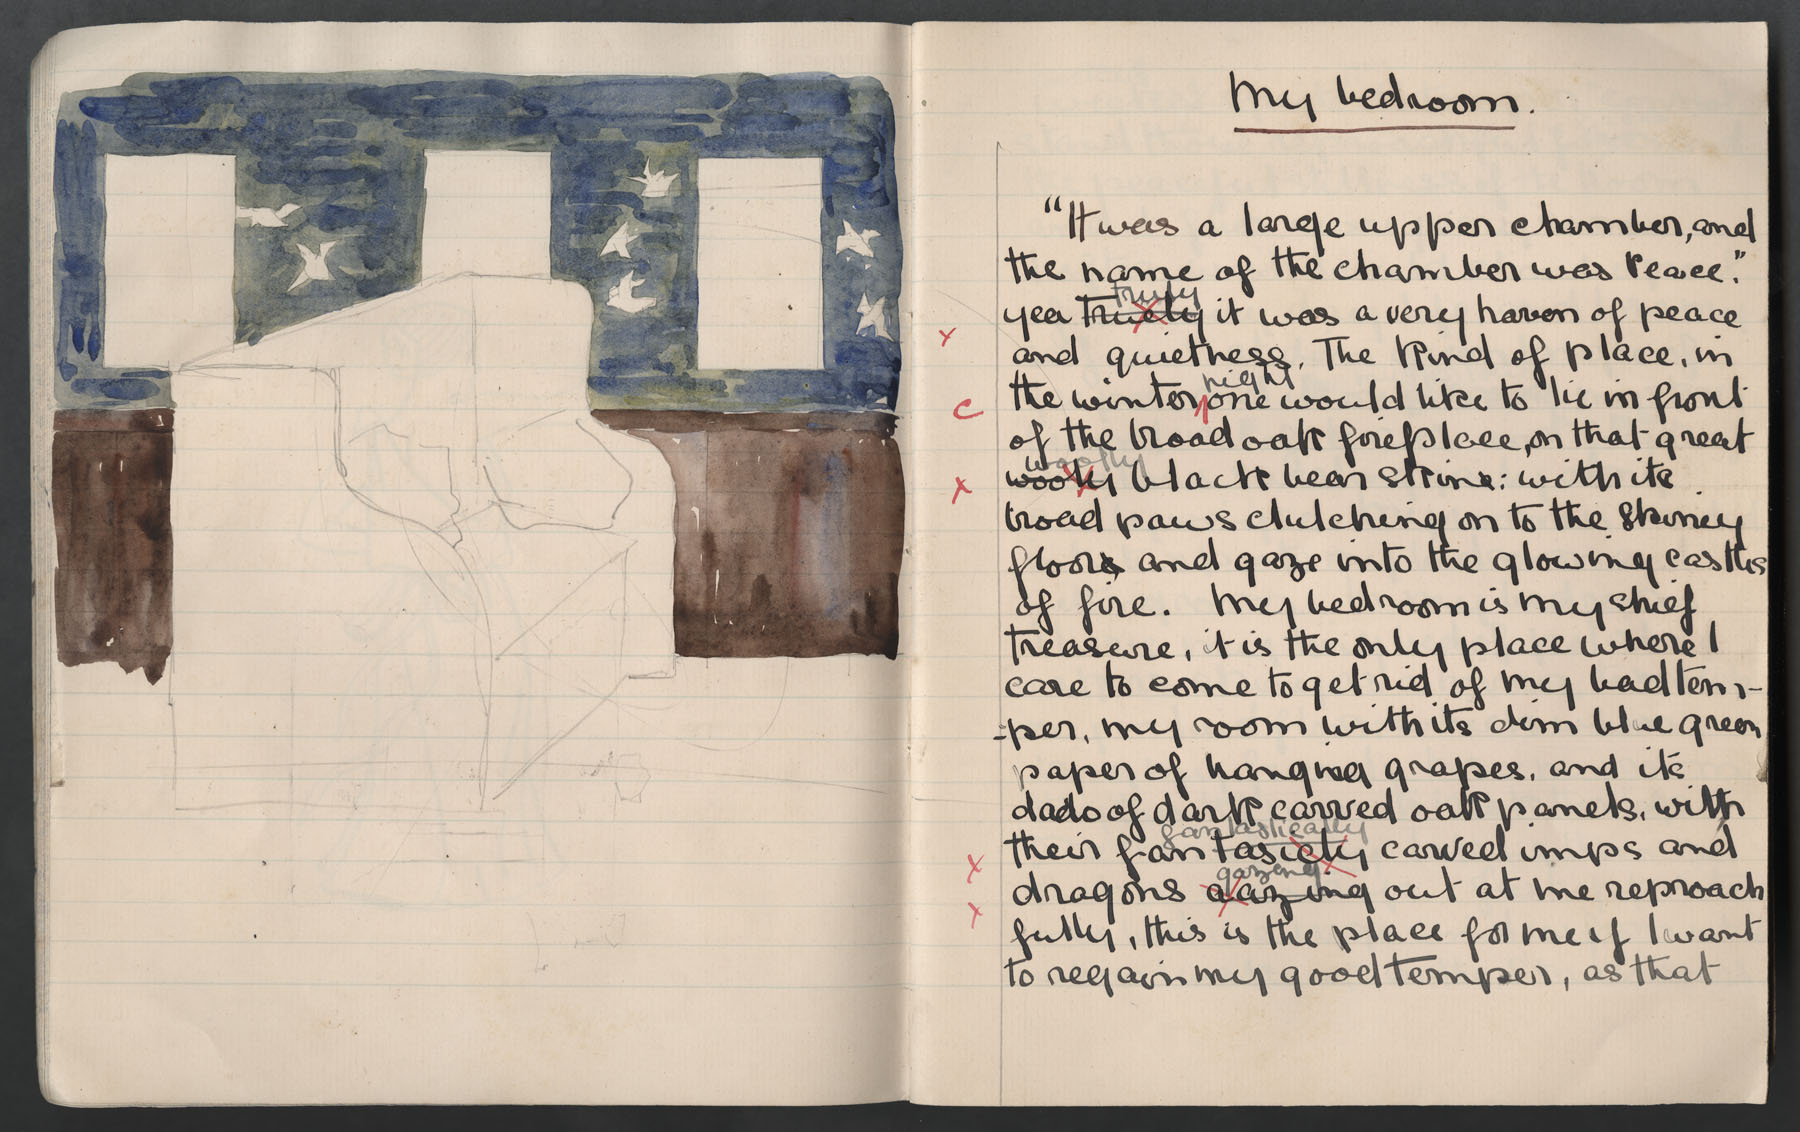 My bedroom.
"It was a large upper chamber, and
the name of the chamber was Peace."
truly
yea truely it was a very haven of peace
x
and quietness. The kind of place, in
night
c the winter, one would like to lie in front
of the broad oak fireplace, on that great
woolly
x wooly black bear skin: with its
broad paws clutching on to the shiney
floor and gaze into the glowing castles
of fire. My bedroom is my chief
treasure, it is the only place where I
care to come to get rid of my bad tem-
-per, my room with its dim blue green
paper of hanging grapes, and its
dado of dark carved oak panels, with
fantastically
x their fantasicly carved imps and
gazeing
x dragons gazing out at me reproach
fully, this is the place for me if I want
to regain my good temper, as that